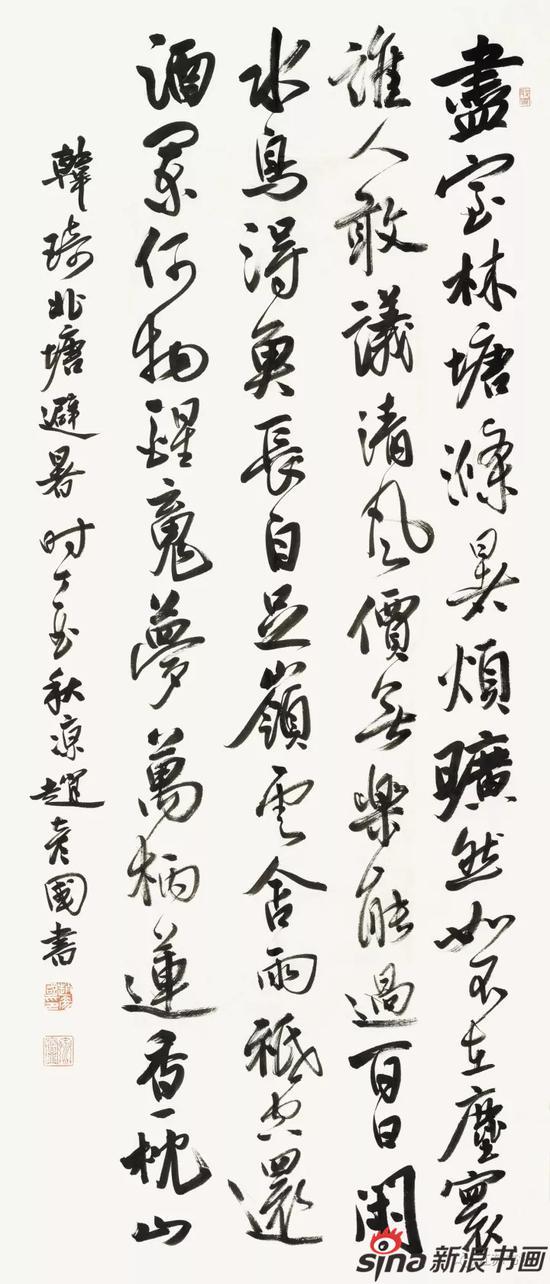 盡室林塘滌暑煩曠然如不在塵寰
誰人敢議清風價無樂能過百日閑
水鳥得魚長自足嶺雲含雨祗空還
酒闌何物醒魂夢萬柄蓮香一枕山
韓琦北塘避暑 时丁酉秋涼趙彥國書
sina 新浪书画